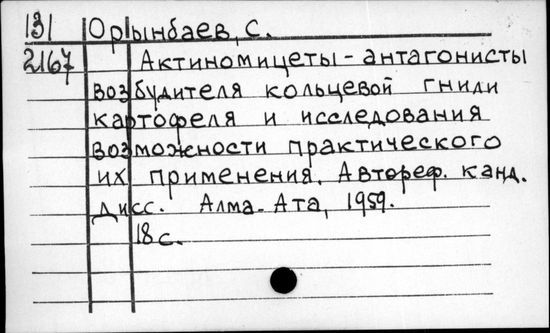 131 Орынбаев, С.
2167 Актиномицеты - антагонисты
возбудителя кольцевой гнили
картофеля и исследования
возможности практического
их применения. Автореф. канд.
дисс. Алма-Ата, 1959.
18 с.